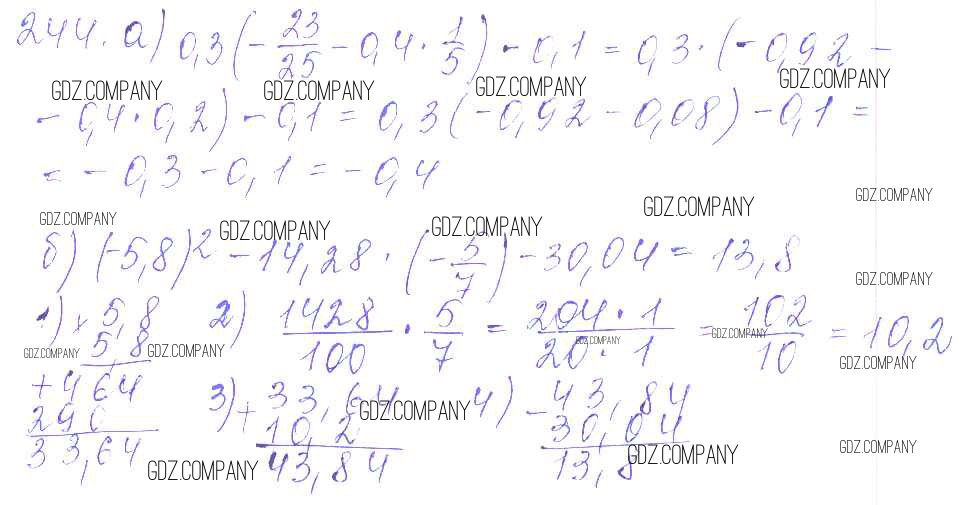 244. а) 0,3(-23/25 - 0,4 · 1/5) - 0,1 = 0,3 · (-0,92 -
GDZ.COMPANY GDZ.COMPANY GDZ.COMPANY GDZ.COMPANY
- 0,4 · 0,2) - 0,1 = 0,3(-0,92 - 0,08) - 0,1 =
= - 0,3 - 0,1 = - 0,4
GDZ.COMPANY GDZ.COMPANY GDZ.COMPANY GDZ.COMPANY GDZ.COMPANY
б) (-5,8)² - 14,28 · (-5/7) - 30,04 = 13,8
GDZ.COMPANY
1) × 5,8
5,8
+ 464
290
33,64
2) 1428/100 · 5/7 = 204 · 1/20 · 1 = 102/10 = 10,2
GDZ.COMPANY GDZ.COMPANY GDZ.COMPANY GDZ.COMPANY GDZ.COMPANY
3) + 33,64
10,2
43,84
4) - 43,84
30,04
13,8
GDZ.COMPANY GDZ.COMPANY GDZ.COMPANY GDZ.COMPANY